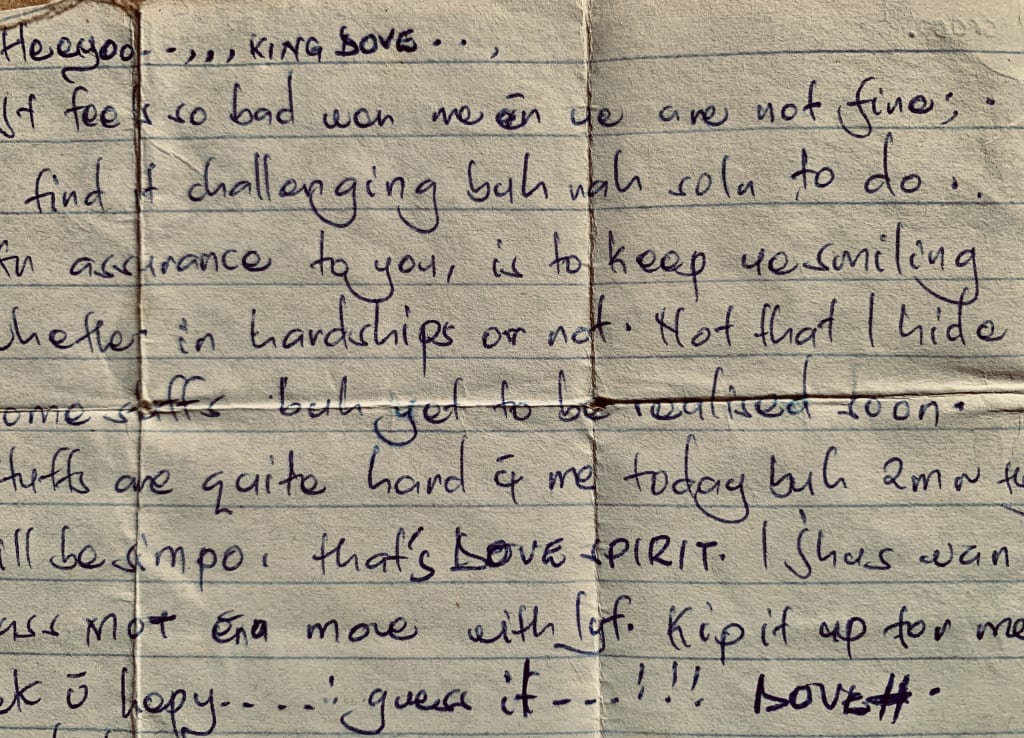 Heeyoo--,,, KING DOVE..,
It feels so bad wen me ēn ye are not fine;.
find it challenging buh nah solu to do..
assurance to you, is to keep ye smiling
in hardships or not. Not that I hide
ome stffs buh yet to be realised soon.
tuffs are quite hard 4 me today buh 2mw
ill be simpo. that's DOVE SPIRIT. I Jhus wan
more with lyf. Kip it up for me
ū hopy.....: guess it---!!! DOVE#.